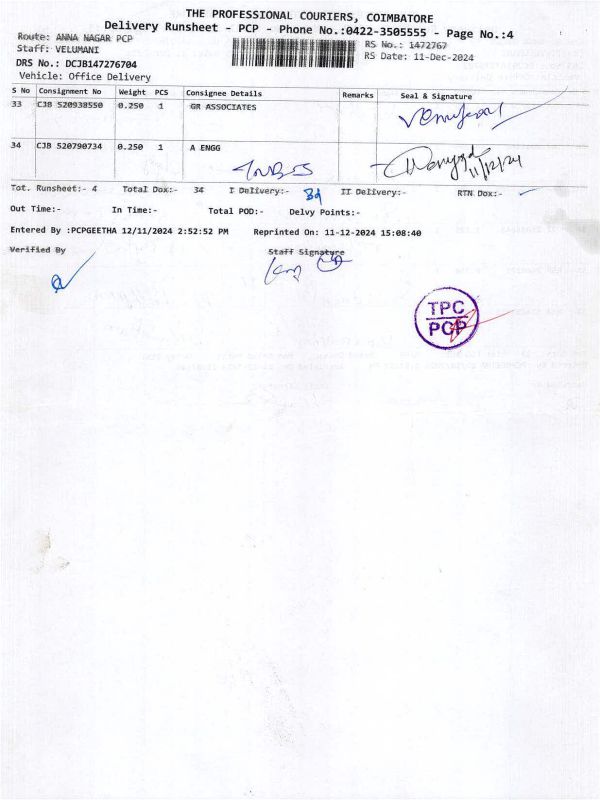 THE PROFESSIONAL COURIERS, COIMBATORE
Delivery Runsheet - PCP - Phone No.:0422-3505555 - Page No.:4
Route: ANNA NAGAR PCP
RS No.: 1472767
Staff: VELUMANI
RS Date: 11-Dec-2024
DRS No.: DCJB147276704
Vehicle: Office Delivery
S No Consignment No Weight PCS Consignee Details Remarks Seal & Signature
33 CJB 520938550 0.250 1 GR ASSOCIATES
34 CJB 520790734 0.250 1 A ENGG
11/12/24
Tot. Runsheet:- 4 Total Dox:- 34 I Delivery:- II Delivery:- RTN Dox:-
Out Time:- In Time:- Total POD:- Delvy Points:-
Entered By :PCPGEETHA 12/11/2024 2:52:52 PM Reprinted On: 11-12-2024 15:08:40
Verified By Staff Signature
TPC
PCP